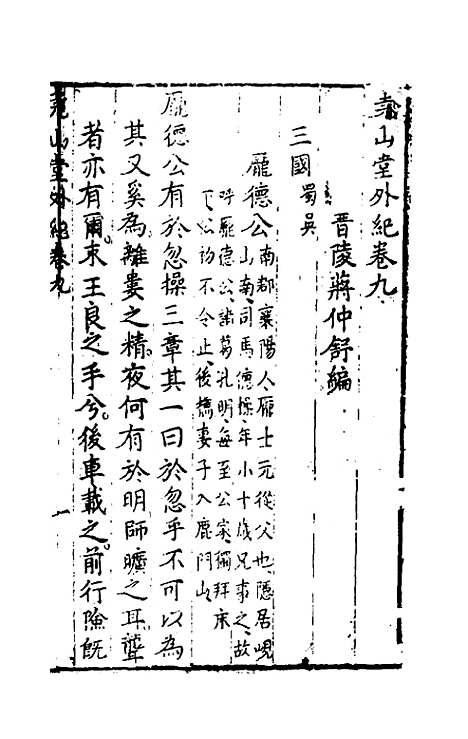 堯山堂外紀卷九
晋陵蔣仲舒編
三國 蜀吳
龐德公南郡襄陽人龐士元從父也隱居峴
山南司馬德操年小十歲兄事之故
呼龐德公諸葛孔明每至公家獨拜床
下公初不令止後攜妻子入鹿門山
龐德公有於忽操三章其一曰於忽乎不可以為
其又奚為離婁之精夜何有於明師曠之耳聾
者亦有爾束王良之手兮後車載之前行險既
堯山堂外紀卷九
一